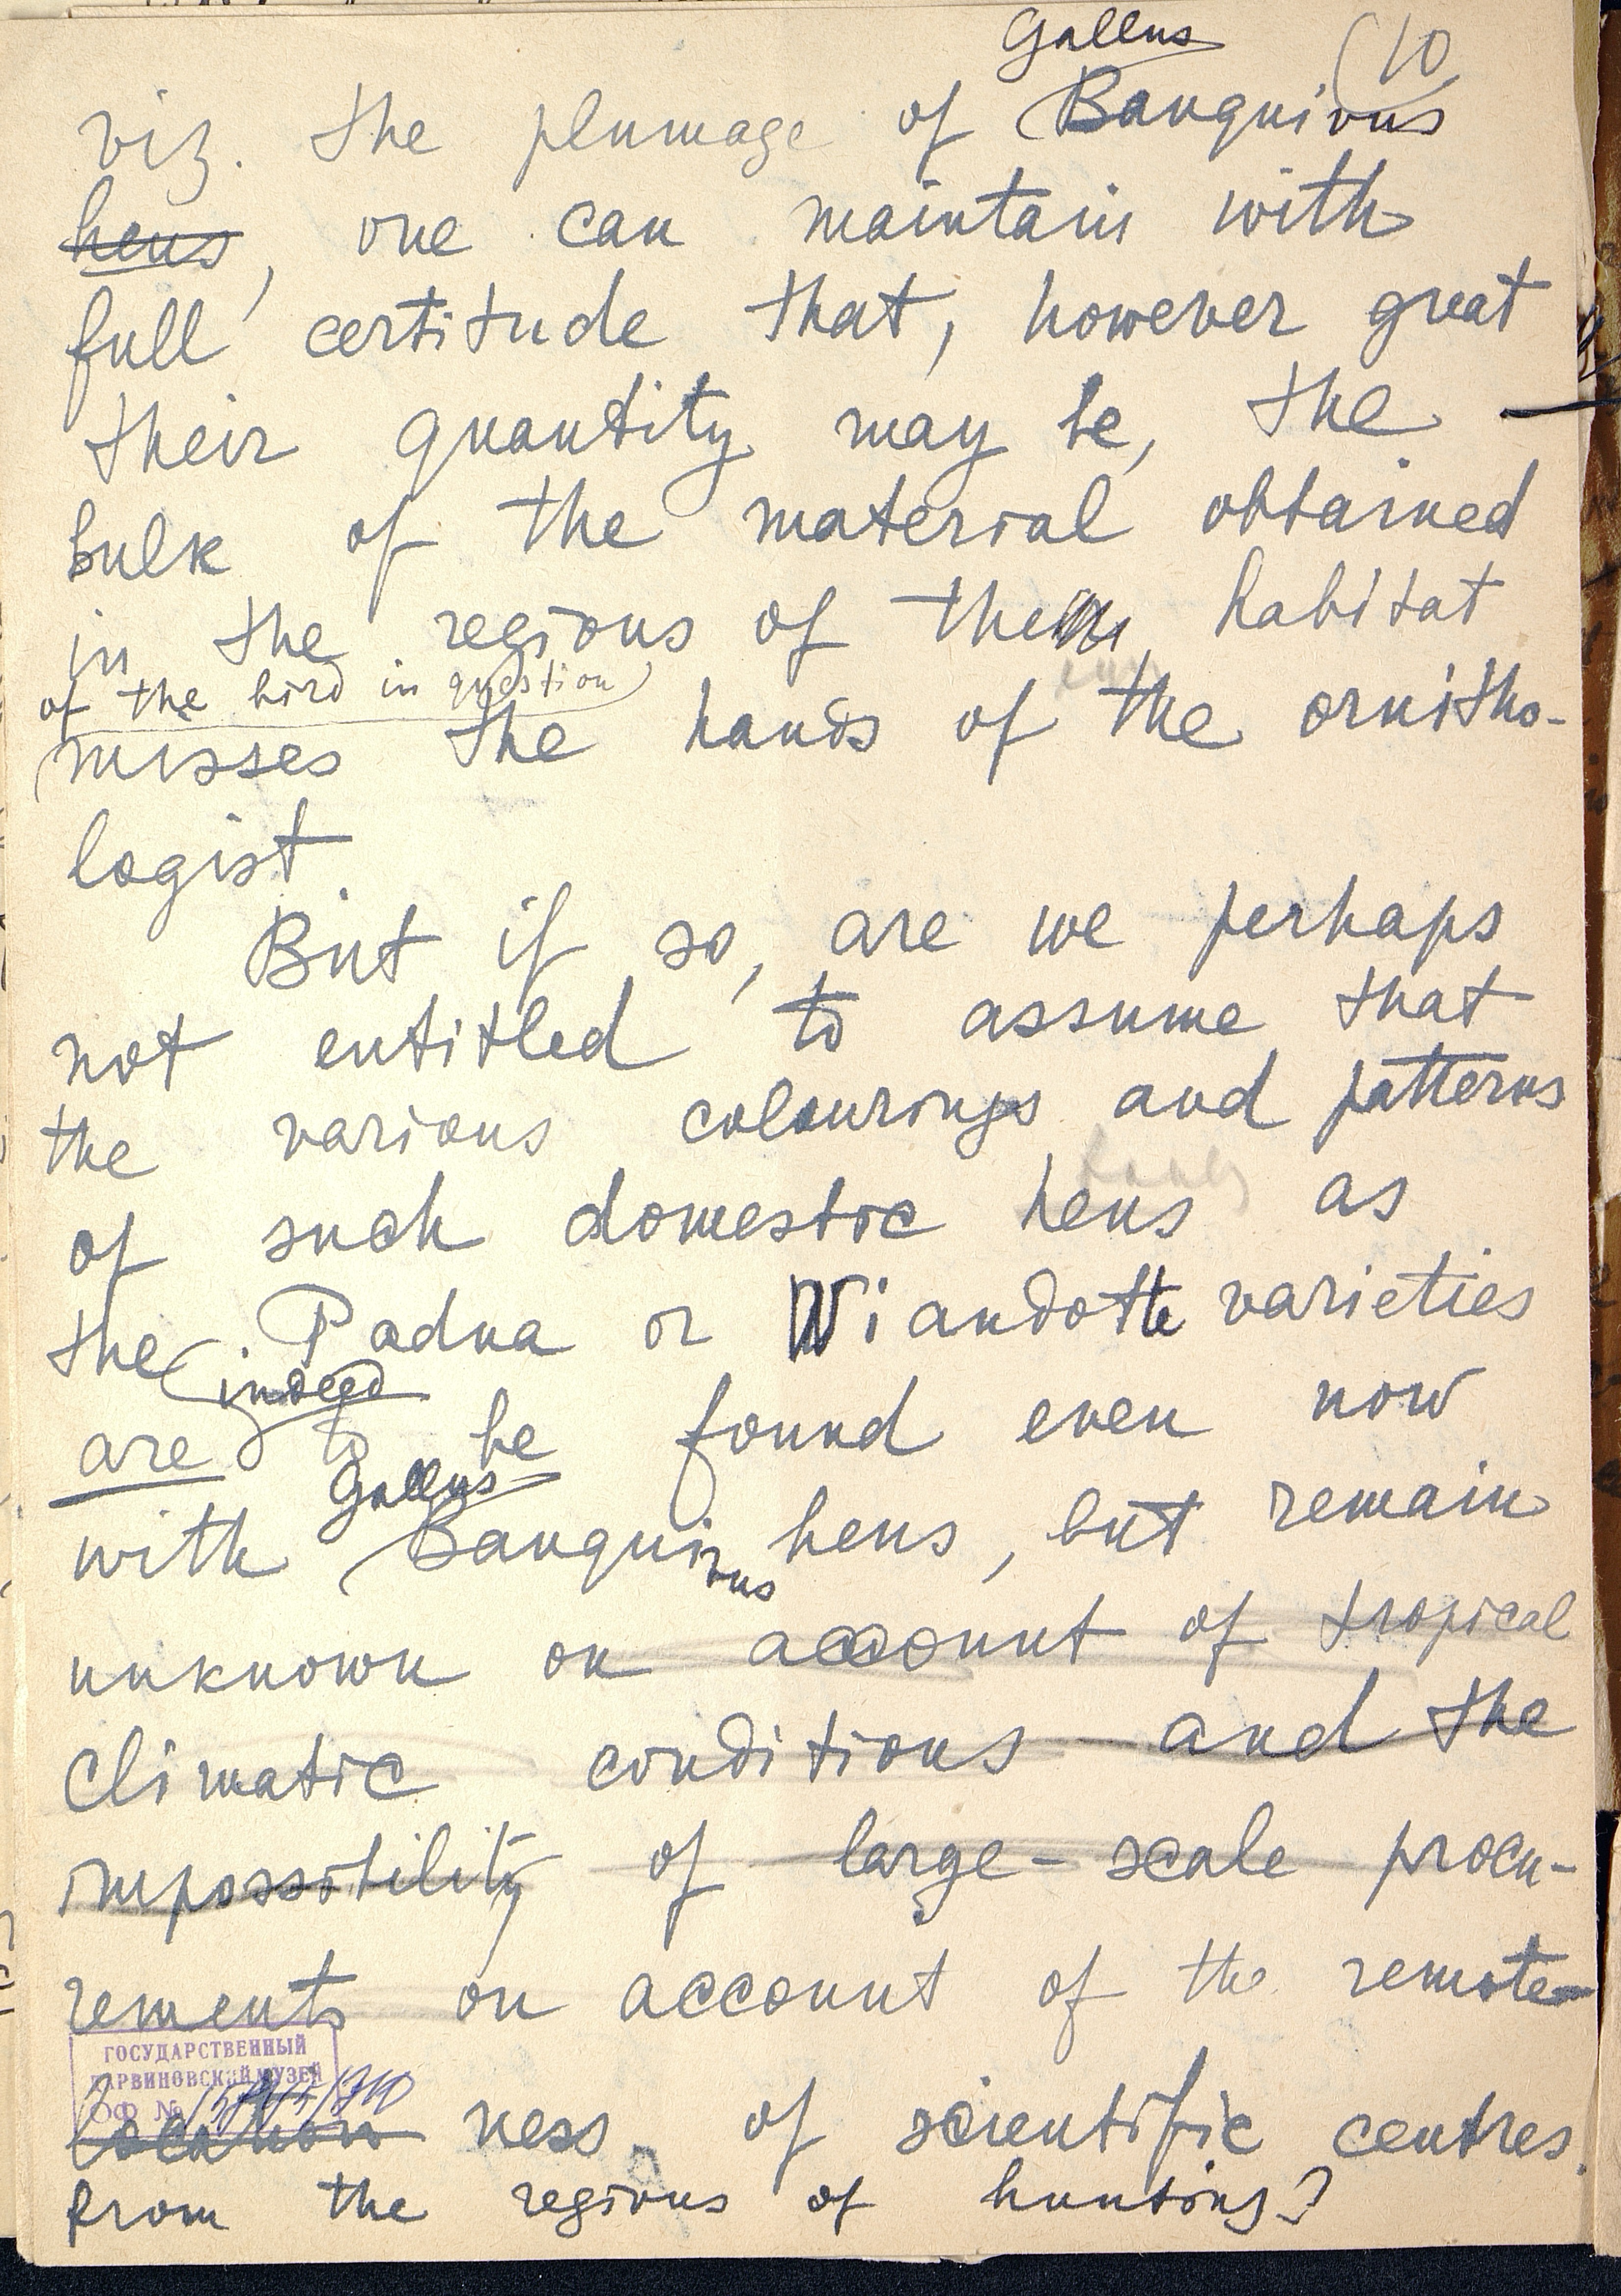 (10
Gallus
viz. the plumage of Banquivus
hens, one can maintain with
full certitude that, however great
their quantity may be, the
bulk of the material obtained
in the regions of the habitat
of the bird in question
misses the hands of the ornitho-
logist.
But if so, are we perhaps
not entitled to assume that
the various colourings and patterns
of such domestic hens as
the Padua or Wiandotte varieties
indeed
are to be found even now
Gallus
with Banquivus hens, but remain
unknown on account of tropical
climatic conditions and the
impossibility of large-scale procu-
rements on account of the remote-
ГОСУДАРСТВЕННЫЙ
ДАРВИНОВСКИЙ МУЗЕЙ
ОФ №
location ness of scientific centres
from the regions of hunting?